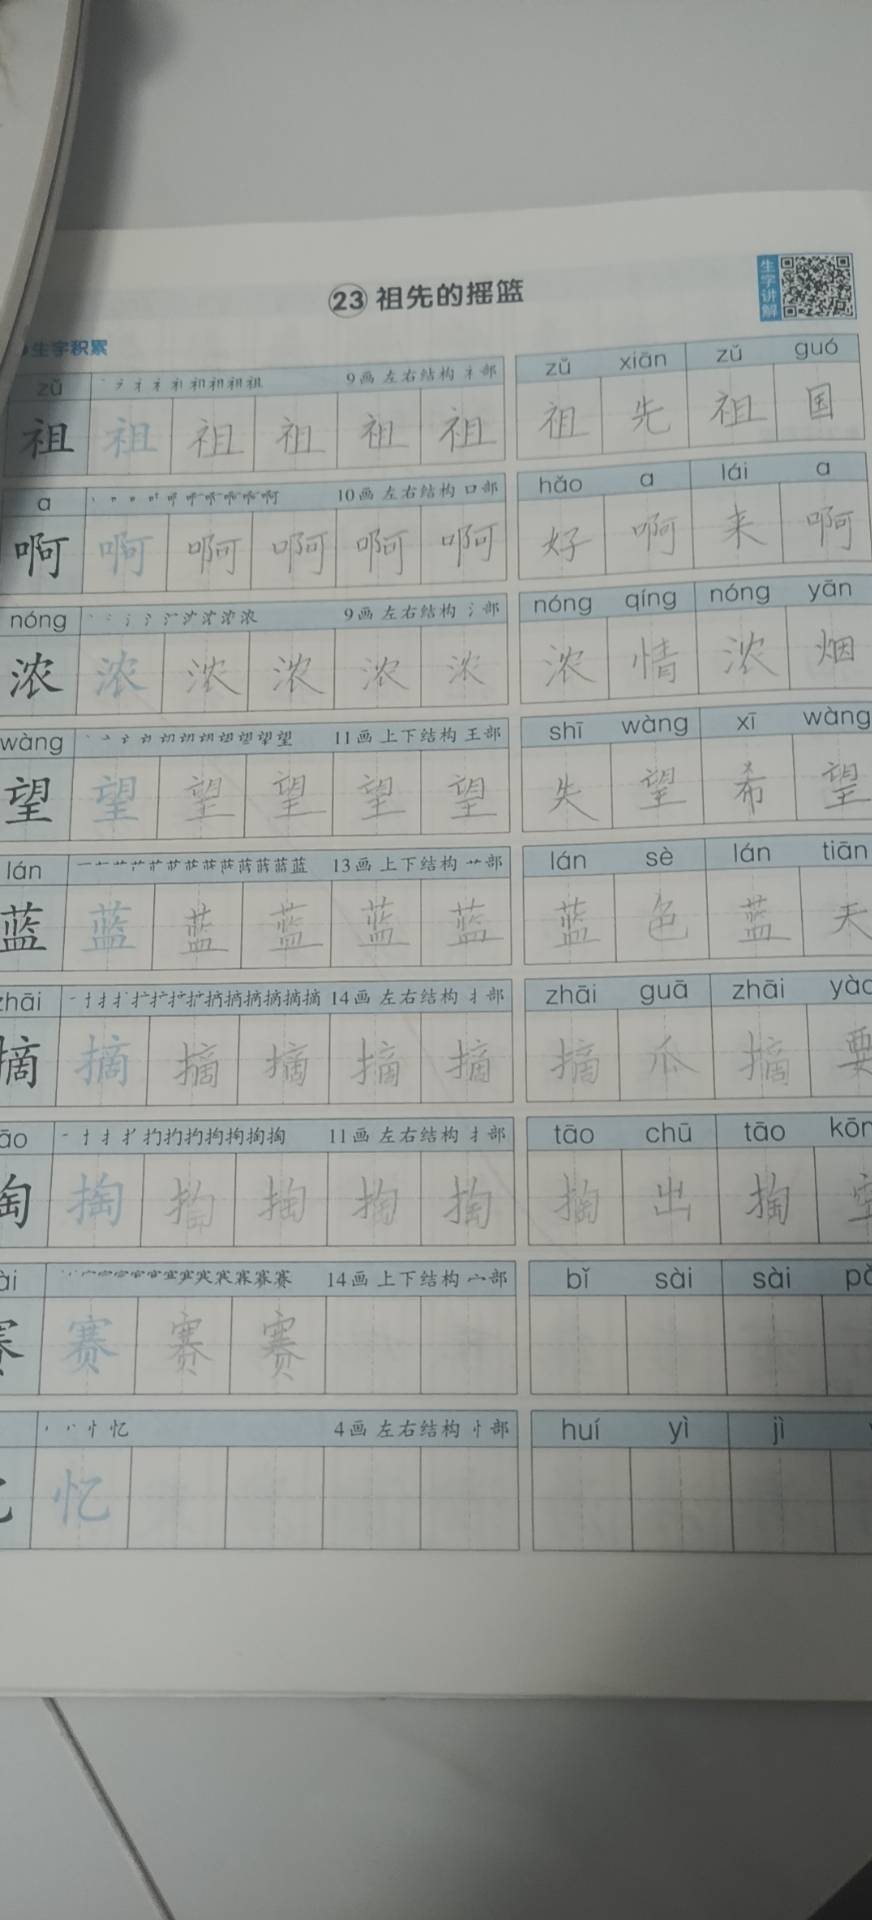 23 祖先的摇篮
生字讲解
生字积累
zǔ 9画 左右结构 礻部 zǔ xiān zǔ guó
祖 祖 祖 祖 祖 祖 祖 先 祖 国
a 10画 左右结构 口部 hǎo a lái a
啊 啊 啊 啊 啊 啊 好 啊 来 啊
nóng 9画 左右结构 氵部 nóng qíng nóng yān
浓 浓 浓 浓 浓 浓 浓 情 浓 烟
wàng 11画 上下结构 王部 shī wàng xī wàng
望 望 望 望 望 望 失 望 希 望
lán 13画 上下结构 艹部 lán sè lán tiān
蓝 蓝 蓝 蓝 蓝 蓝 蓝 色 蓝 天
zhāi 14画 左右结构 扌部 zhāi guā zhāi yào
摘 摘 摘 摘 摘 摘 摘 瓜 摘 要
āo 11画 左右结构 扌部 tāo chū tāo kōn
掏 掏 掏 掏 掏 掏 掏 出 掏 空
ài 14画 上下结构 宀部 bǐ sài sài pǎ
赛 赛 赛 赛
4画 左右结构 忄部 huí yì jì
忆 忆